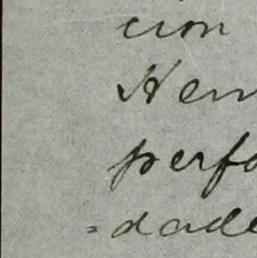 cion
Hem
perfo
=dade